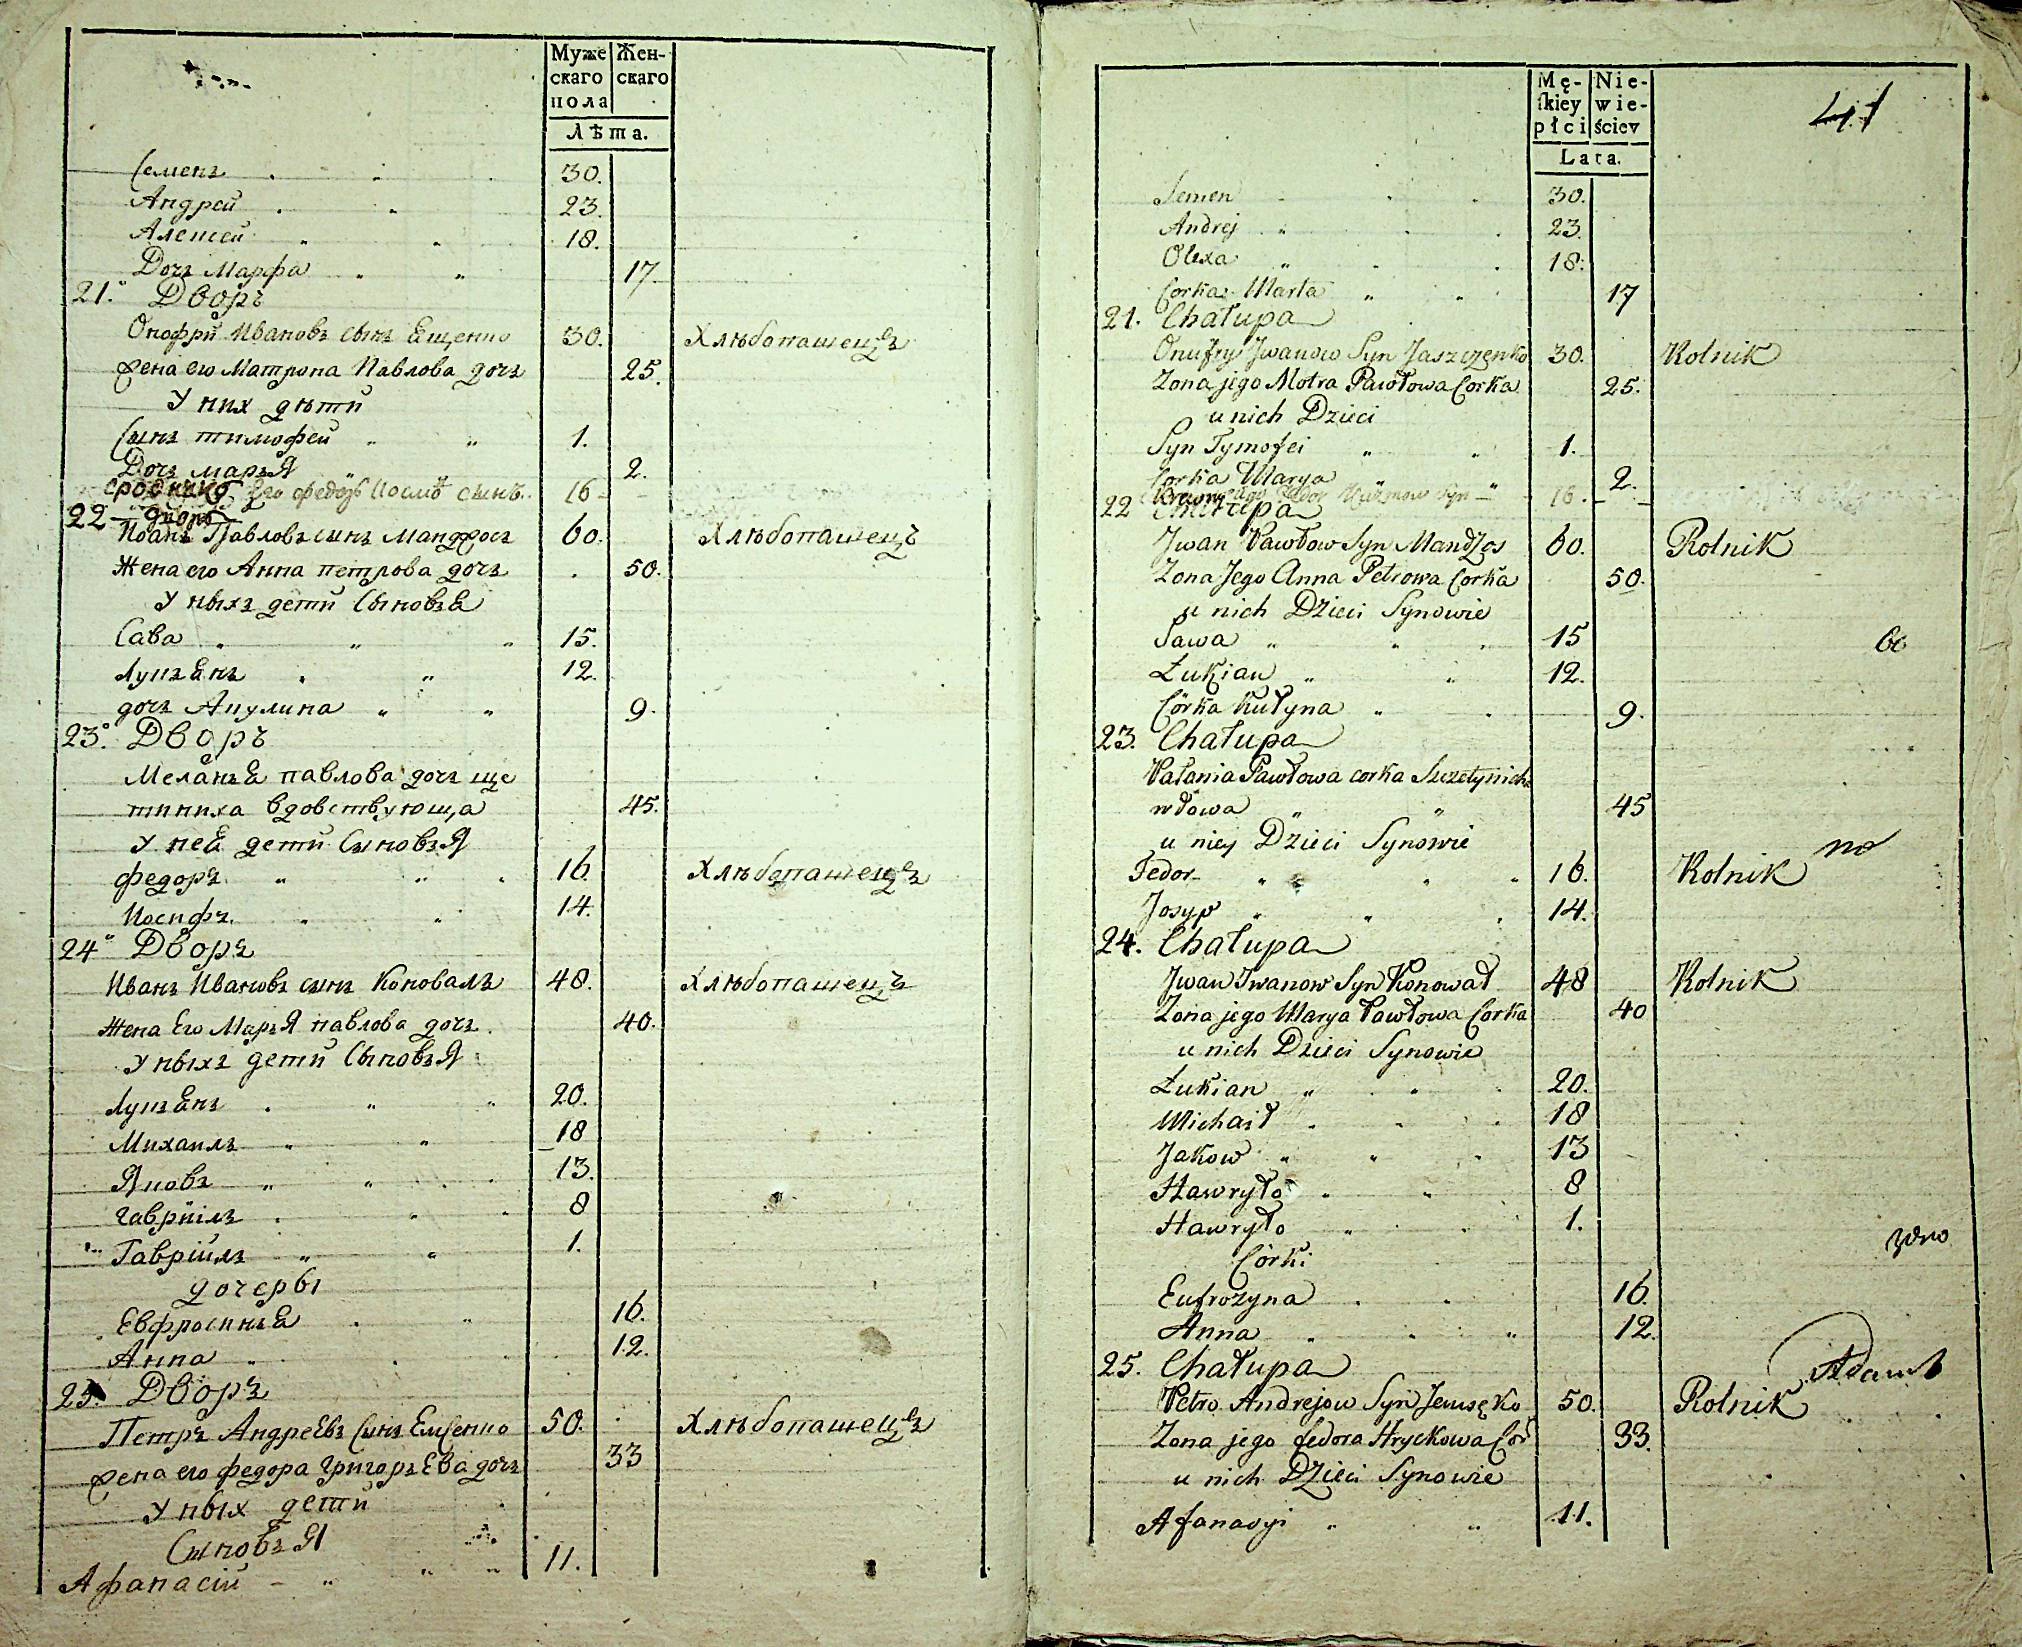 Муже Жен-
скаго скаго
пола
Лѣта.
Семенъ 30.
Андрей 23.
Алексей 18.
Дочъ Марфа 17
21. Дворъ
Онофрій Ивановъ сынъ Ещенко 30. Хлѣбопашецъ
жена его Матрона Павлова дочъ 25.
У них дѣти
Сынъ тимофей 1.
Дочъ маръя 2.
сродникъ Его федоръ сынъ 16
22 дворъ
Иоанъ Павловъ сынъ Манджосъ 60. Хлѣбопашецъ
Жена его Анна петрова дочъ 50.
У ныхъ дети Сыновъя
Сава 15.
Лукъянъ 12.
дочъ Акулина 9.
23. Дворъ
Меланъя павлова дочъ ще
тиниха вдовствующа 45.
У ней дети Сыновъя
федоръ 16. Хлѣбопашецъ
Иосифъ 14.
24 Дворъ
Иванъ Ивановъ сынъ Коновалъ 48. Хлѣбопашецъ
Жена Его Маръя павлова дочъ 40.
У ныхъ дети Сыновъя
Лукъянъ 20.
Михаилъ 18
Яковъ 13.
гавріилъ 8
Гавріилъ 1.
дочеры
Евфросинъя 16.
Анна 12.
25. Дворъ
Петръ Андреевъ Сынъ 50. Хлѣбопашецъ
жена его федора григоръева дочъ 33
У ных дети
Сыновъя
Афанасій 11.
Mę- Nie-
ſkiey wie-
płci ściey
Lata.
41
Semen 30.
Andrej 23.
Olexa 18.
Corka Marta 17
21. Chałupa
Onufry Jwanow Syn Jaszczenko 30. Rolnik
Zona jego Motra Pawłowa Corka 25.
u nich Dzieci
Syn Tymofei 1.
Corka Marya 2.
Krewny jego Fedor Syn 16.
22 Chałupa
Jwan Pawłow Syn Mandżos 60. Rolnik
Zona Jego Anna Petrowa Corka 50.
u nich Dzieci Synowie
Sawa 15
Łukian 12.
Córka Kułyna 9.
23. Chałupa
Pawłowa corka
wdowa 45
u niey Dzieci Synowie
Fedor 16. Rolnik
Josyp 14.
24. Chałupa
Jwan Jwanow Syn Konował 48 Rolnik
Zona jego Marya Pawłowa Corka 40
u nich Dzieci Synowie
Łukian 20.
Michaił 18
Jakow 13
Hawryło 8
Hawryło 1.
Córki
Eufrozyna 16.
Anna 12.
25. Chałupa
Petro Andrejow Syn 50. Rolnik
Zona jego fedora Hryckowa Cor 33.
u nich Dzieci Synowie
Afanasyi 11.